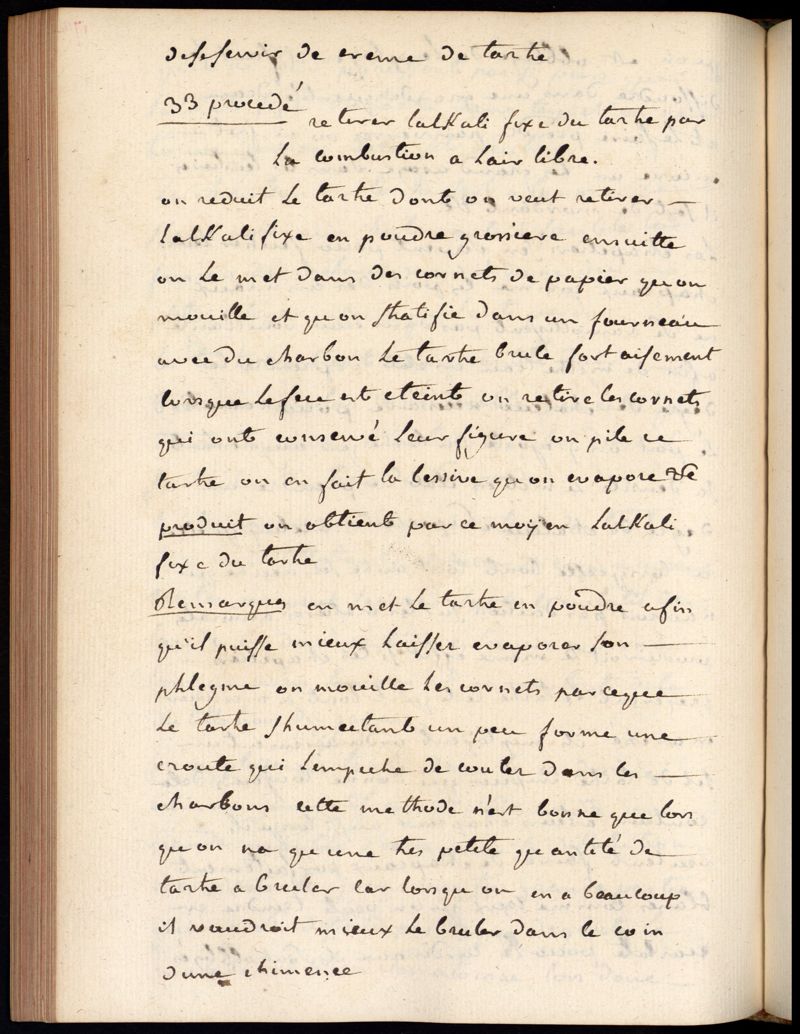 desservir de creme de tartre
33 procedé
retirer lalKali fixe du tartre par
La combustion a Lair libre.
on reduit Le tartre dont on veut retirer —
lalKali fixe en poudre grossiere ensuitte
on Le met dans des cornets de papier qu on
mouille et qu on stratifie dans un fourneau
avec du charbon Le tartre brule fort aisement
lorsque Le feu est eteint on retire les cornets
qui ont conservé Leur figure on pile ce
tartre on en fait la lessive qu on evapore
produit on obtient par ce moyen LalKali
fixe du tartre
Remarques on met Le tartre en poudre afin
qu'il puisse mieux Laisser evaporer son —
phlegme on mouille Les cornets parceque
Le tartre shumectant un peu forme une —
croute qui Lempeche de couler dans les —
charbons cette methode n'est bonne que lors
qu on na qu une tres petite quantité de
tartre a bruler car lorsqu on en a beaucoup
il vaudroit mieux Le bruler dans le coin
dune chimenee